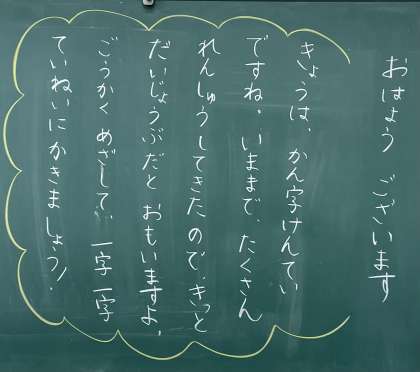 おはよう ございます
きょうは、かん字けんてい
ですね。いままで、たくさん
れんしゅうしてきたので、きっと
だいじょうぶだと おもいますよ。
ごうかくめざして、一字一字
ていねいにかきましょう!